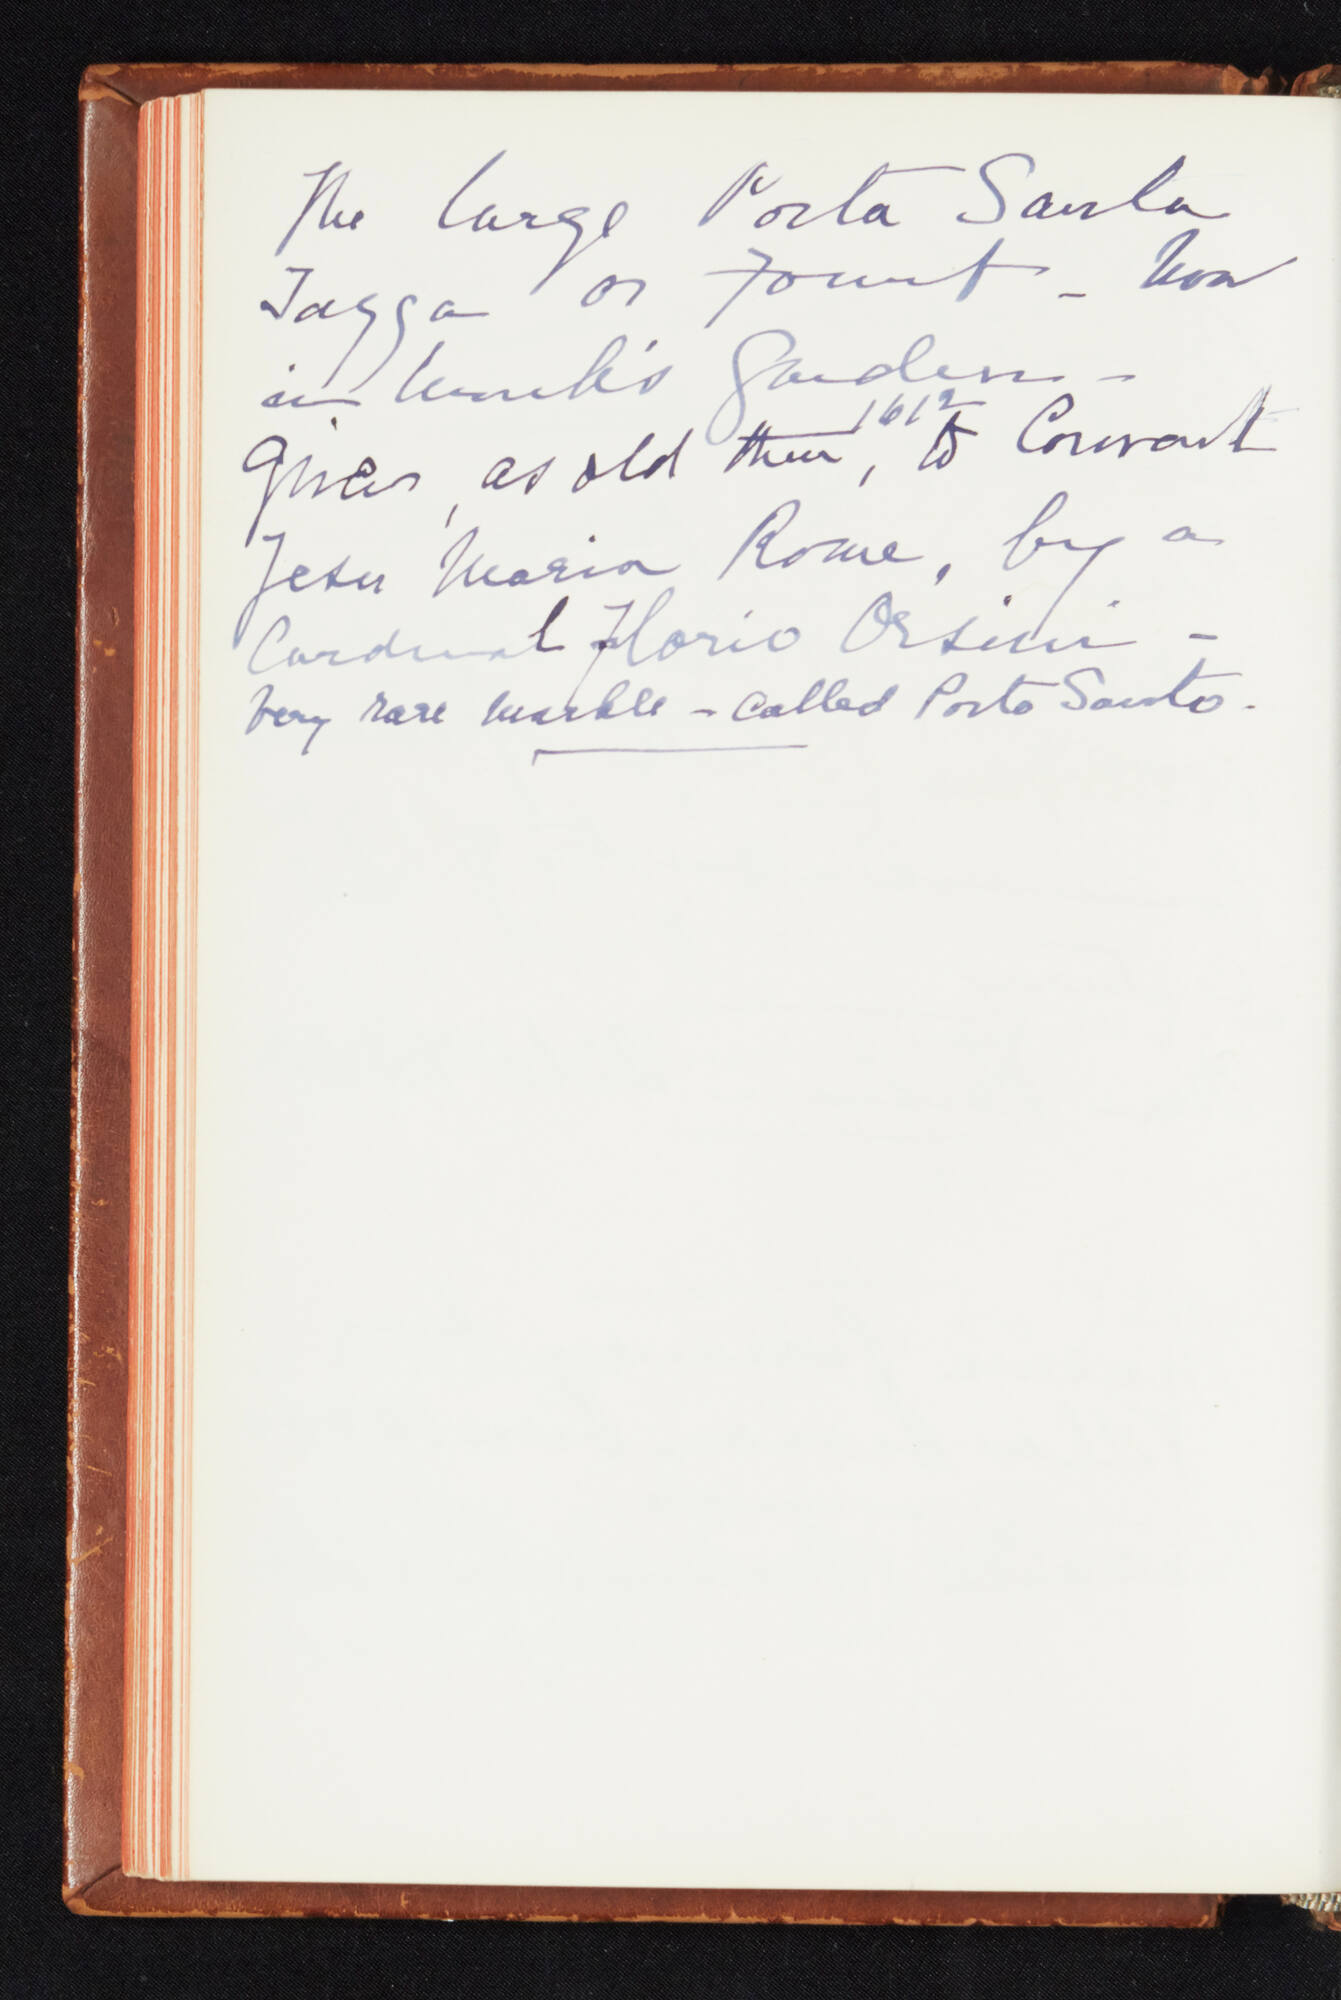 The large Porta Santa
Tazza or Fount - Now
in Monk's Garden -
Given, as old then, 1612, to Convent
Jesu Maria Rome, by a
Cardinal Florio Orsini -
Very rare marble - called Porto Santo -